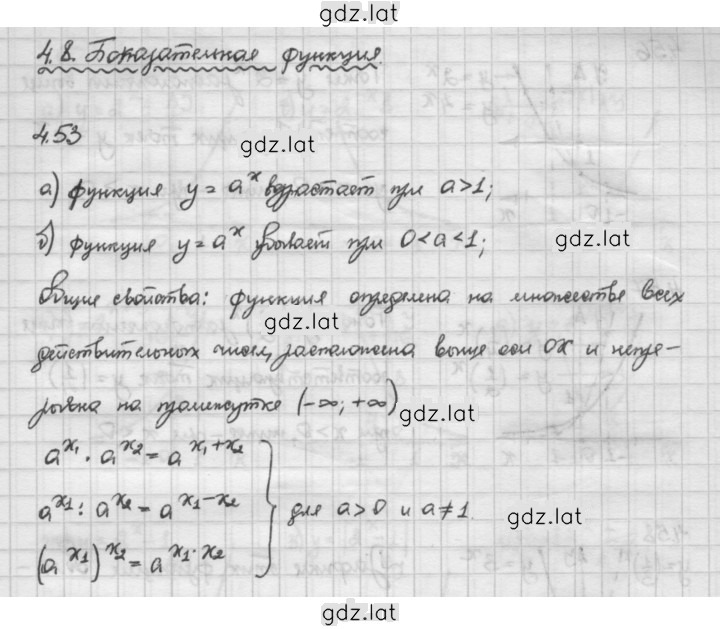 gdz.lat
4.8. Показательная функция.
4.53
gdz.lat
а) функция y = a^x возрастает при a>1;
б) функция y = a^x убывает при 0<a<1;
gdz.lat
Общие свойства: функция определена на множестве всех
gdz.lat
действительных чисел, расположена выше оси OX и непре-
рывна на промежутке (-∞; +∞)
gdz.lat
a^{x₁} · a^{x₂} = a^{x₁+x₂}
a^{x₁} : a^{x₂} = a^{x₁-x₂} } для a>0 и a≠1.
gdz.lat
(a^{x₁})^{x₂} = a^{x₁·x₂}
gdz.lat